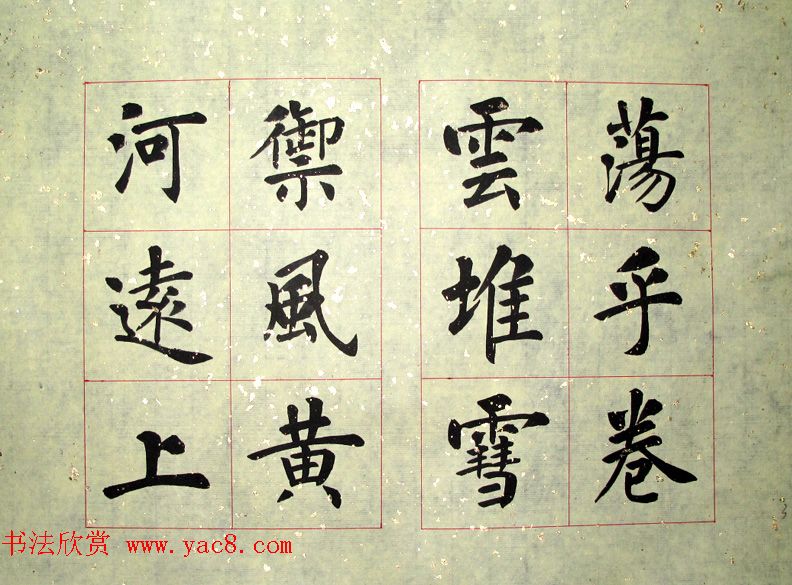 蕩乎卷
雲堆䨮
禦風黄
河遠上
书法欣赏 www.yac8.com